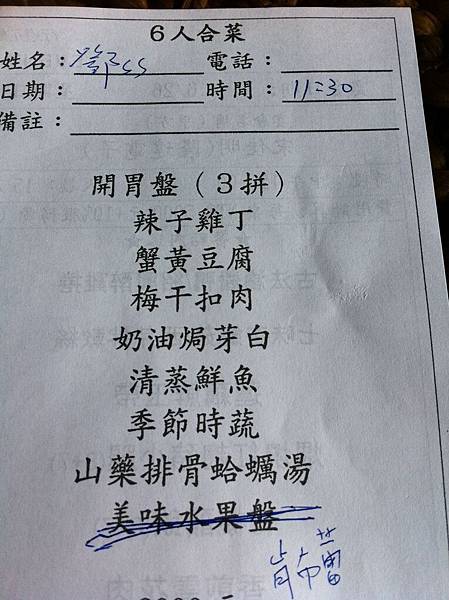 6人合菜
姓名：鄧ss 電話：
日期： 時間：11:30
備註：
開胃盤（3拼）
辣子雞丁
蟹黃豆腐
梅干扣肉
奶油焗芽白
清蒸鮮魚
季節時蔬
山藥排骨蛤蠣湯
美味水果盤